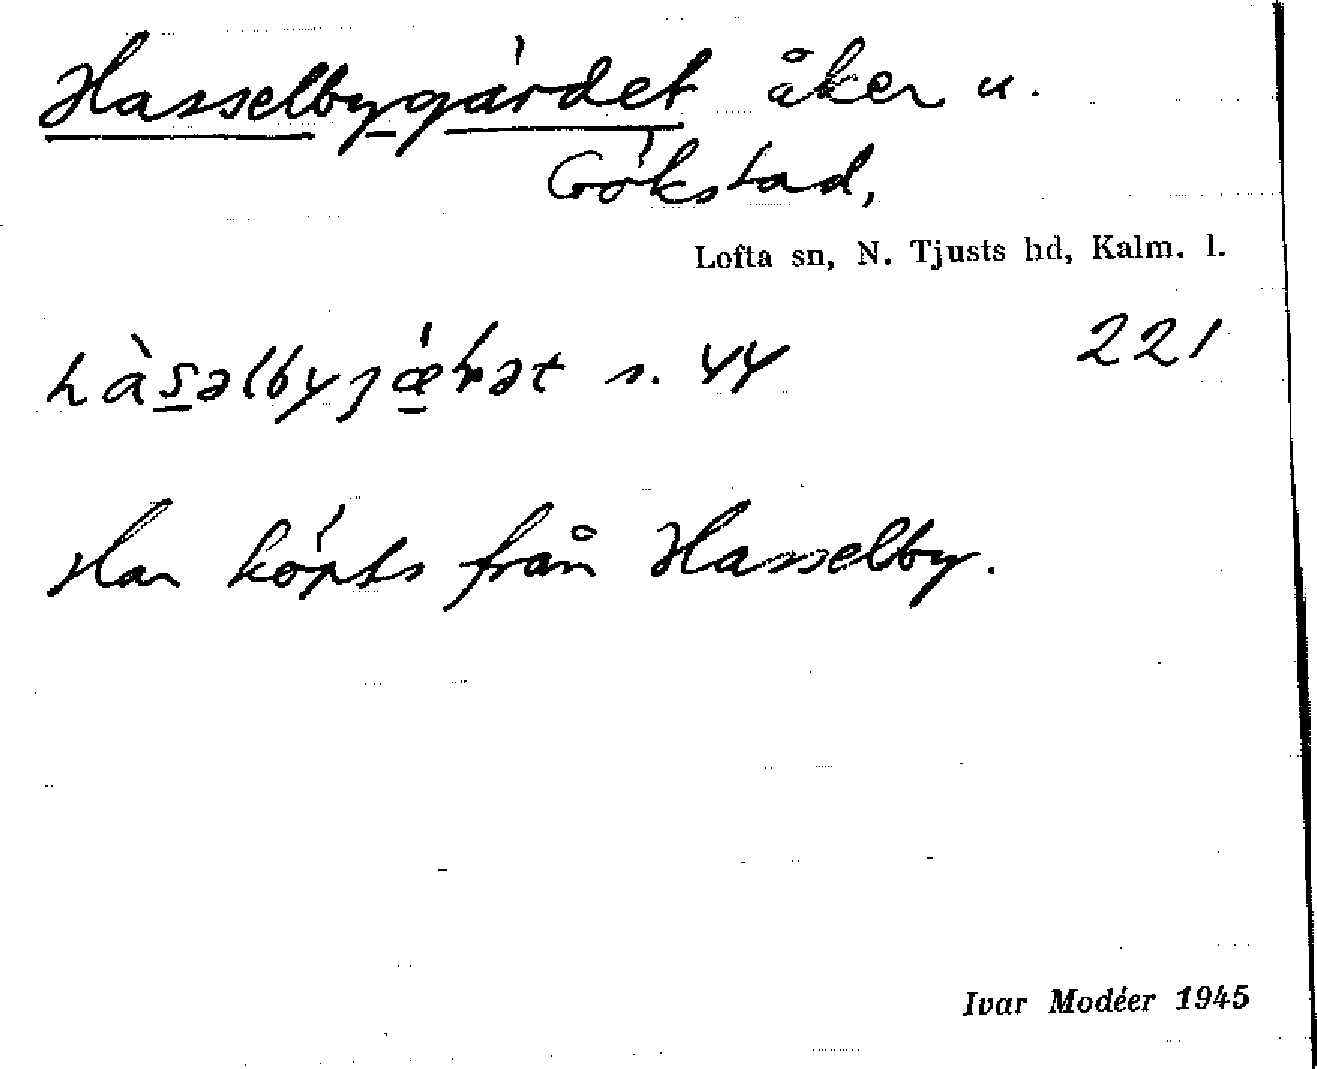 Hasselbygärdet åker u.
Gökstad,
Lofta sn, N. Tjusts hd, Kalm. l.
s. 44 221
Har köpts från Hasselby.
Ivar Modéer 1945